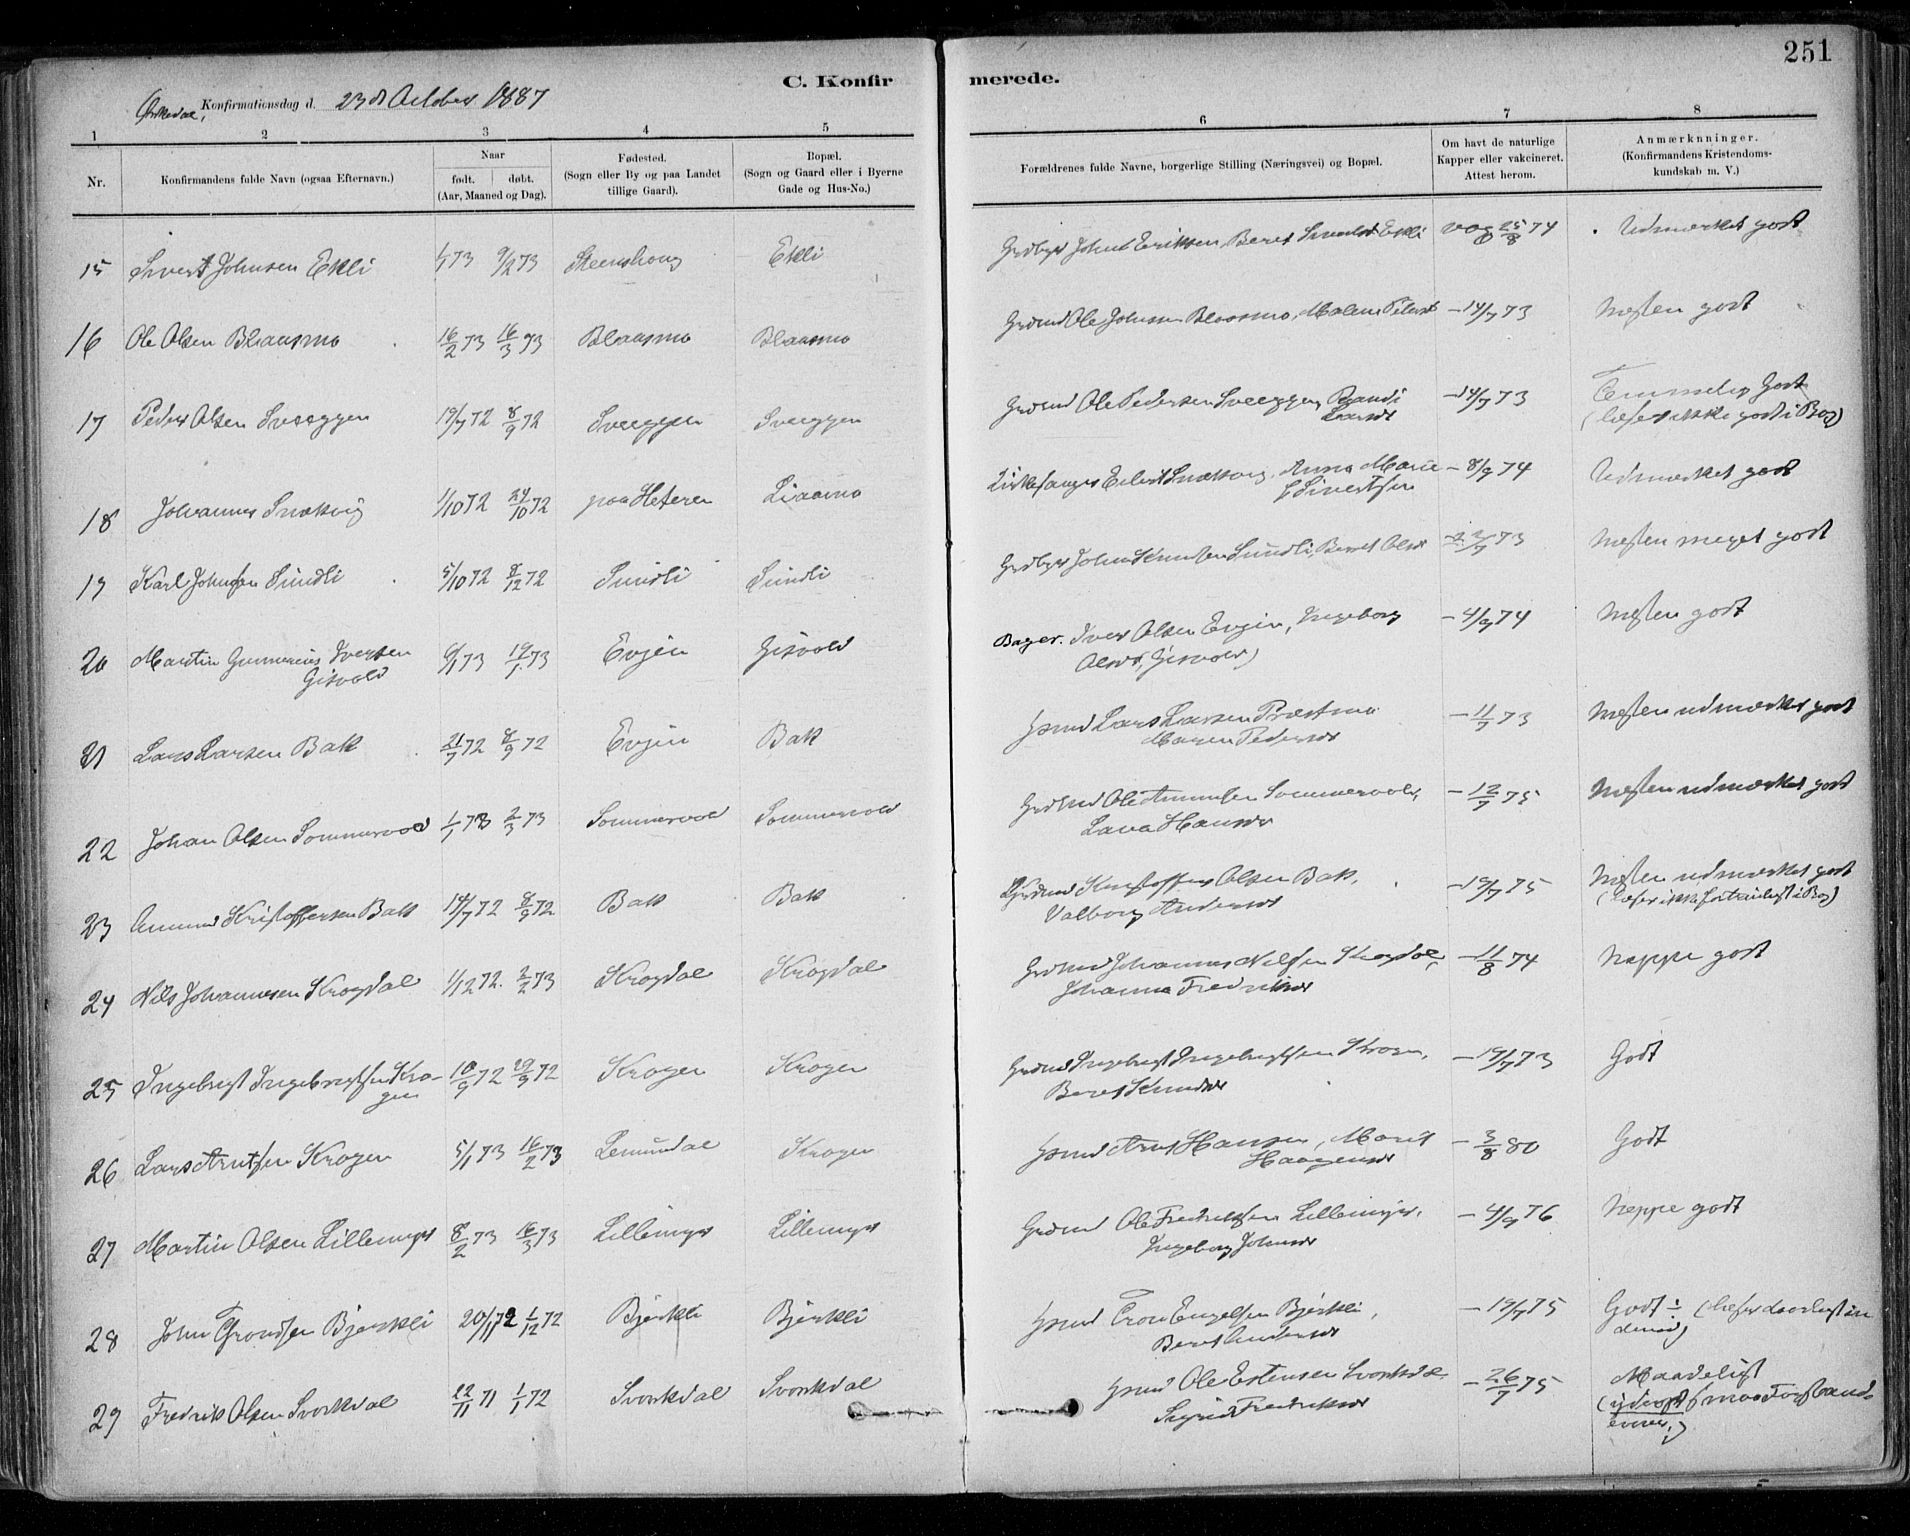 251
C. Konfirmerede.
Ørkedal, Konfirmationsdag d. 23de October 1887
1 2 3 4 5 6 7 8
Nr. Konfirmandens fulde Navn (ogsaa Efternavn.) Naar født. døbt. (Aar, Maaned og Dag). Fødested. (Sogn eller By og paa Landet tillige Gaard). Bopæl. (Sogn og Gaard eller i Byerne Gade og Hus-No.) Forældrenes fulde Navne, borgerlige Stilling (Næringsvei) og Bopæl. Om havt de naturlige Kapper eller vakcineret. Attest herom. Anmærknninger. (Konfirmandens Kristendomskundskab m. V.)
15 Sivert Johnsen Ekli 1/1 73 9/2 73 Ekli John Eriksen, Beret Ekli 25/8 74 Udmærket godt
16 Ole Olsen Blaasmo 16/2 73 16/3 73 Blaasmo Blaasmo Grdmd Ole Johnsen Blaasmo, Malene Petersd – 14/7 73 Næsten godt
17 Peder Olsen Sveeggen 19/7 72 8/9 72 Sveeggen Sveeggen Grdmd Ole Pedersen Sveeggen, Randi Larsd – 14/7 73 Temmelig Godt
(læser ikke godt i Bog)
18 Johannes Snekvig 1/10 72 27/10 72 paa Hiteren Liaamo Kirkesanger Eilert Snekvig, Anna Marie Sivertsen – 8/9 74 Udmærket godt
19 Karl Johnsen Sundli 5/10 72 8/12 72 Sundli Sundli John Knudsen Sundli, Beret Olsd 73 Næsten meget godt
20 Martin Gunnerius Iversen Gisvold 6/1 73 19/1 73 Evjen Gisvold Bager. Iver Olsen Evjen, Ingeborg
Olsd, Gisvold) – 4/9 74 Næsten godt
21 Lars Larsen Bak 21/7 72 8/9 72 Evjen Bak Lars Larsen Præstmo
Maren Pedersd – 11/7 73 Næsten udmærket godt
22 Johan Olsen Sommervold 1/1 73 2/3 73 Sommervold Sommervold Grdmd Ole Amundsen Sommervold,
Lava Hansd – 12/7 75 Næsten udmærket godt
23 Amund Kristoffersen Bak 14/7 72 8/9 72 Bak Bak Kristoffer Olsen Bak,
Valborg Andersd – 19/7 75 Næsten udmærket godt
(læser ikke fortrinligt i Bog)
24 Nils Johannesen Krogdal 1/12 72. 2/2 73 Krogdal Krogdal Grdmd Johannes Nilsen Krogdal,
Johanna Fredriksd – 11/8 74 Neppe godt
25 Ingebrigt Ingebrigtsen Krogen 10/9 72 29/9 72 Krogen Krogen Grdmd Ingebrigt Ingebrigtsen Krogen,
Beret Knudsd – 19/7 73 Godt
26 Lars Arntsen Krogen 5/1 73 16/2 73 Lomundal Krogen Arnt Hansen, Marit
Haagensd – 3/8 80 Godt
27 Martin Olsen Lillemyr 8/2 73 16/3 73 Lillemyr Lillemyr Grdmd Ole Fredriksen Lillemyr,
Ingeborg Johnsd – 4/9 76 Neppe godt
28 John Trondsen Bjerkli 20/11 72 1/12 72 Bjerkli Bjerkli Tron Engelsen Bjerkli,
Beret Andersd – 19/7 75 Godt ÷ (læser daarligt
29 Fredrik Olsen Svorkdal 22/11 71 1/1 72 Svorkdal Svorkdal Ole Estensen Svorkdal
Sigrid Fredriksd – 26/7 75 Maadeligt